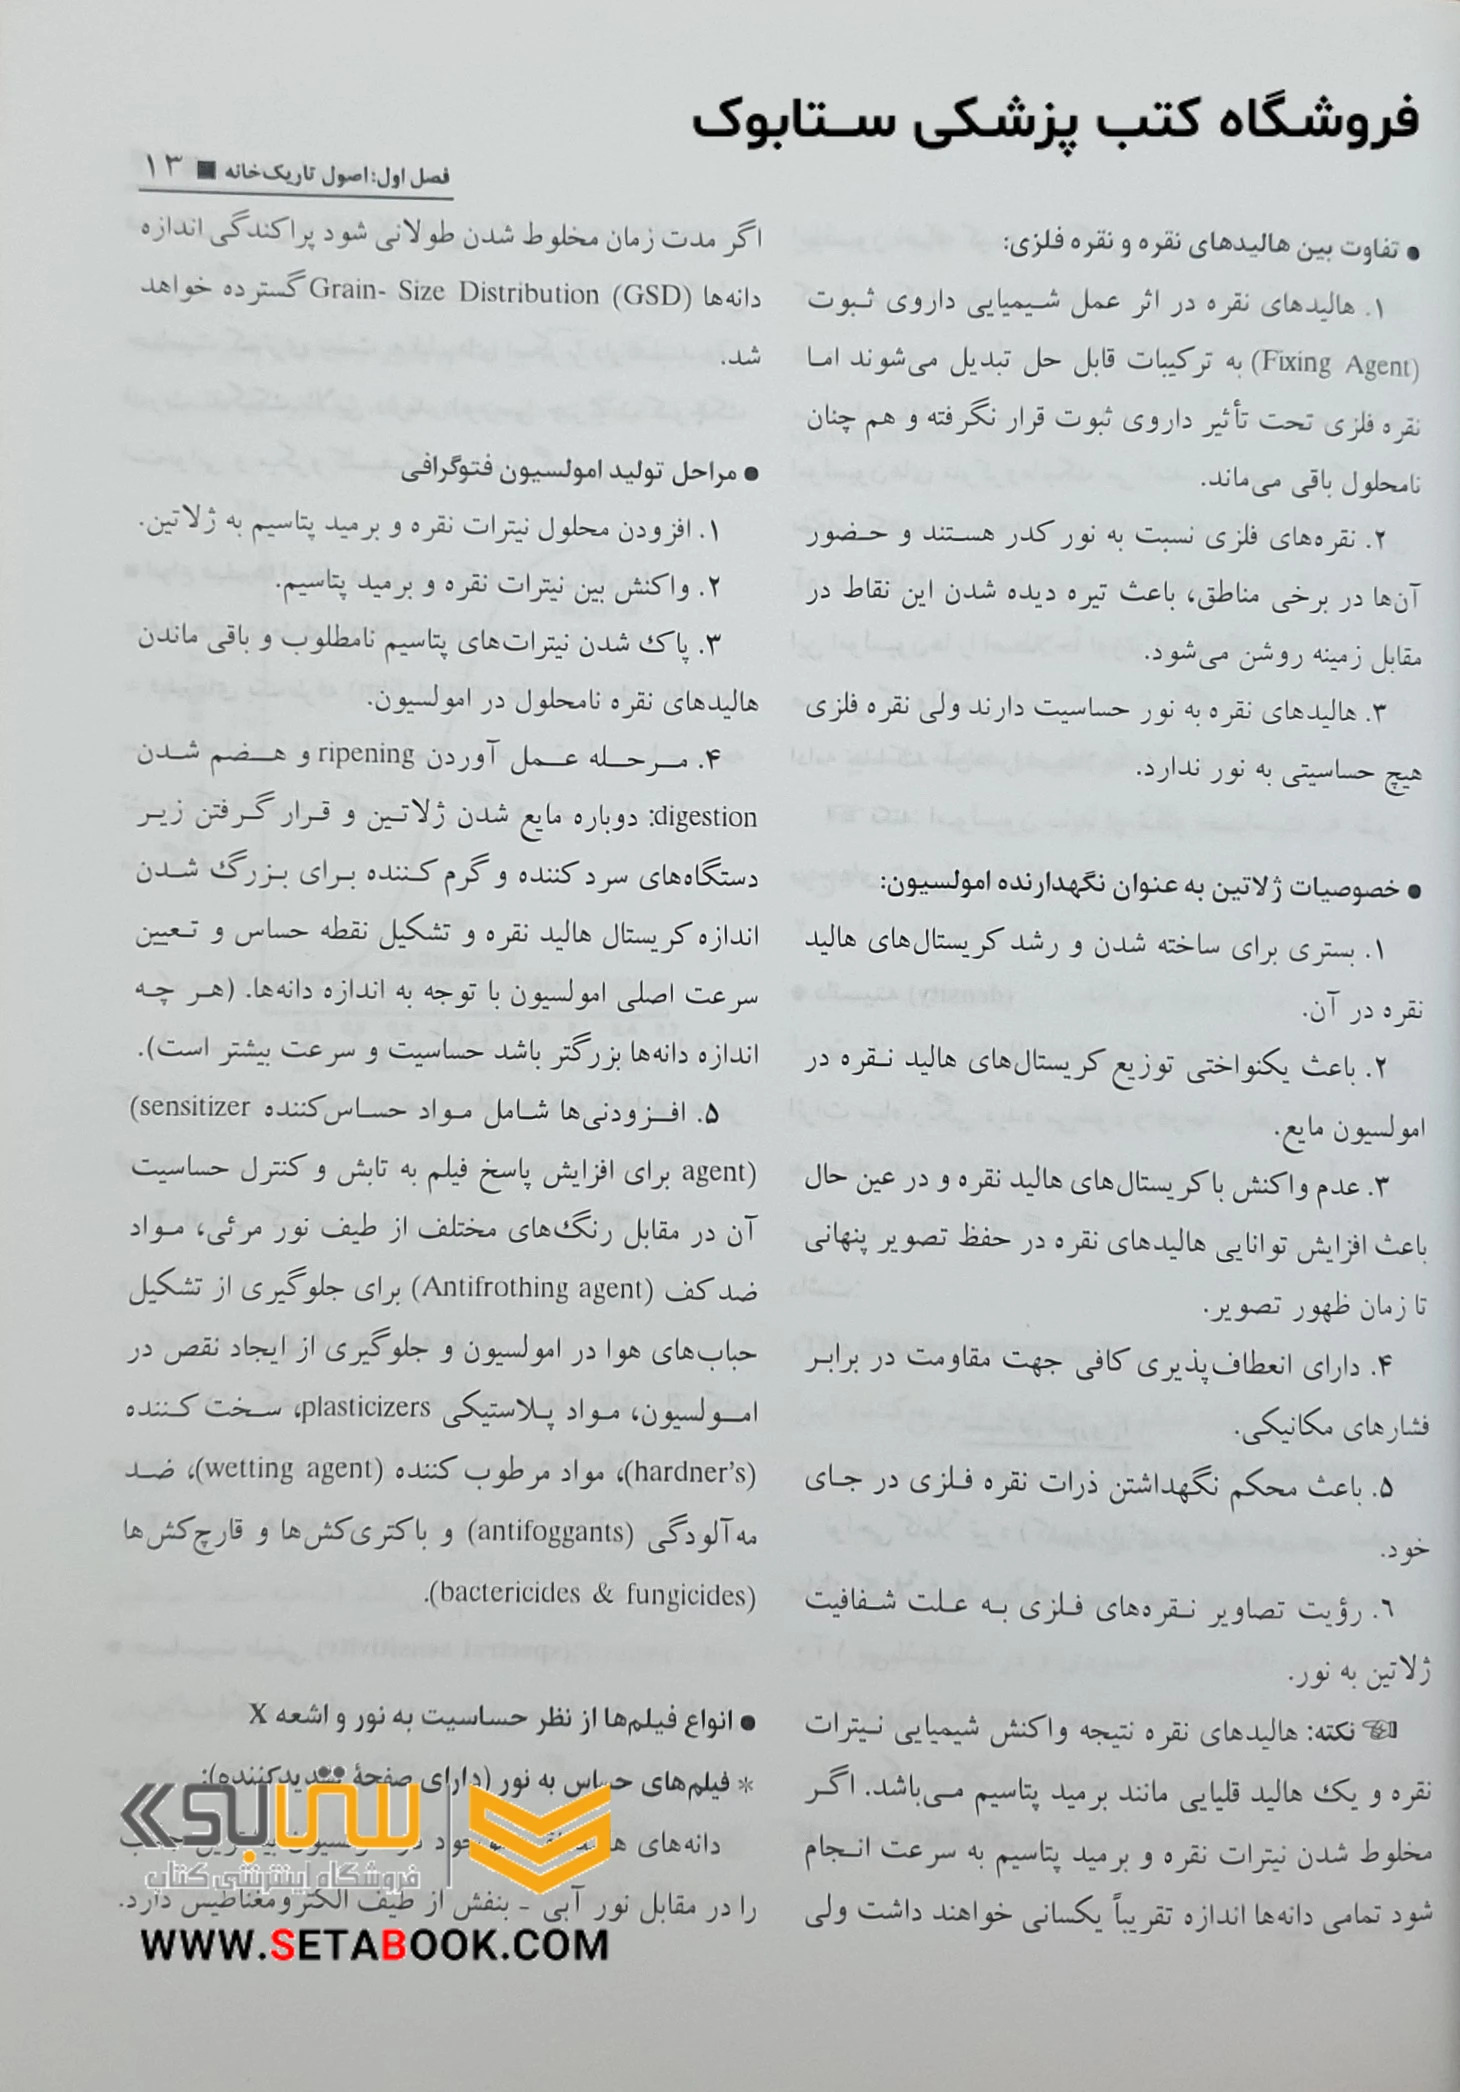 فروشگاه کتب پزشکی ستابوک
فصل اول: اصول تاریک‌خانه ■ ۱۳
● تفاوت بین هالیدهای نقره و نقره فلزی:
۱. هالیدهای نقره در اثر عمل شیمیایی داروی ثبوت
(Fixing Agent) به ترکیبات قابل حل تبدیل می‌شوند اما
نقره فلزی تحت تأثیر داروی ثبوت قرار نگرفته و هم چنان
نامحلول باقی می‌ماند.
۲. نقره‌های فلزی نسبت به نور کدر هستند و حضور
آن‌ها در برخی مناطق، باعث تیره دیده شدن این نقاط در
مقابل زمینه روشن می‌شود.
۳. هالیدهای نقره به نور حساسیت دارند ولی نقره فلزی
هیچ حساسیتی به نور ندارد.
● خصوصیات ژلاتین به عنوان نگهدارنده امولسیون:
۱. بستری برای ساخته شدن و رشد کریستال‌های هالید
نقره در آن.
۲. باعث یکنواختی توزیع کریستال‌های هالید نقره در
امولسیون مایع.
۳. عدم واکنش با کریستال‌های هالید نقره و در عین حال
باعث افزایش توانایی هالیدهای نقره در حفظ تصویر پنهانی
تا زمان ظهور تصویر.
۴. دارای انعطاف‌پذیری کافی جهت مقاومت در برابر
فشارهای مکانیکی.
۵. باعث محکم نگهداشتن ذرات نقره فلزی در جای
خود.
۶. رؤیت تصاویر نقره‌های فلزی به علت شفافیت
ژلاتین به نور.
☜ نکته: هالیدهای نقره نتیجه واکنش شیمیایی نیترات
نقره و یک هالید قلیایی مانند برمید پتاسیم می‌باشد. اگر
مخلوط شدن نیترات نقره و برمید پتاسیم به سرعت انجام
شود تمامی دانه‌ها اندازه تقریباً یکسانی خواهند داشت ولی
اگر مدت زمان مخلوط شدن طولانی شود پراکندگی اندازه
دانه‌ها Grain- Size Distribution (GSD) گسترده خواهد
شد.
● مراحل تولید امولسیون فتوگرافی
۱. افزودن محلول نیترات نقره و برمید پتاسیم به ژلاتین.
۲. واکنش بین نیترات نقره و برمید پتاسیم.
۳. پاک شدن نیترات‌های پتاسیم نامطلوب و باقی ماندن
هالیدهای نقره نامحلول در امولسیون.
۴. مرحله عمل آوردن ripening و هضم شدن
digestion: دوباره مایع شدن ژلاتین و قرار گرفتن زیر
دستگاه‌های سرد کننده و گرم کننده برای بزرگ شدن
اندازه کریستال هالید نقره و تشکیل نقطه حساس و تعیین
سرعت اصلی امولسیون با توجه به اندازه دانه‌ها. (هر چه
اندازه دانه‌ها بزرگتر باشد حساسیت و سرعت بیشتر است).
۵. افزودنی‌ها شامل مواد حساس‌کننده sensitizer)
(agent برای افزایش پاسخ فیلم به تابش و کنترل حساسیت
آن در مقابل رنگ‌های مختلف از طیف نور مرئی، مواد
ضد کف (Antifrothing agent) برای جلوگیری از تشکیل
حباب‌های هوا در امولسیون و جلوگیری از ایجاد نقص در
امولسیون، مواد پلاستیکی plasticizers، سخت کننده
(hardner's)، مواد مرطوب کننده (wetting agent)، ضد
مه‌آلودگی (antifoggants) و باکتری‌کش‌ها و قارچ‌کش‌ها
(bactericides & fungicides).
● انواع فیلم‌ها از نظر حساسیت به نور و اشعه X
* فیلم‌های حساس به نور (دارای صفحۀ تشدیدکننده):
دانه‌های
را در مقابل نور آبی - بنفش از طیف الکترومغناطیس دارد.
ستابوک
فروشگاه اینترنتی کتاب
WWW.SETABOOK.COM